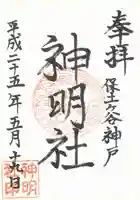 奉拝
保土ヶ谷神戸
神明社
平成二十五年五月十九日